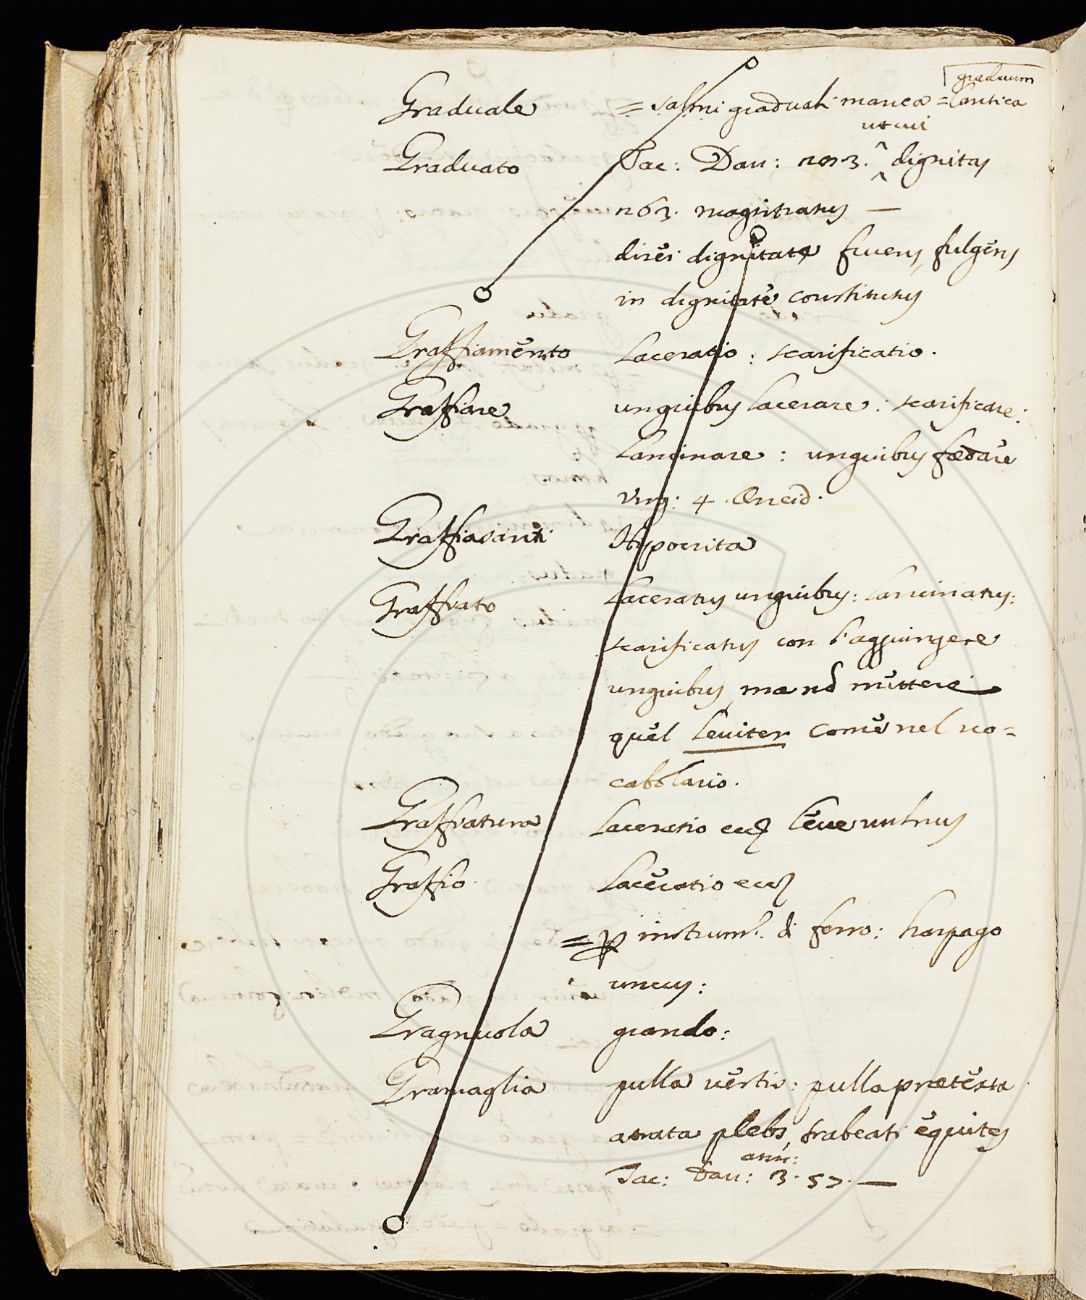 graduum
Graduale = salmi graduali manca = Cantica
ut cui
Graduato Tac: Dau: 203. dignitas
263. magistratus —
direi dignitate fuerens, fulgens
in dignitate constitutus
Graffiamento Laceratio: scarificatio.
Graffiare unguibus lacerare: scarificare:
Lancinare: unguibus fædare
Virg: 4. Æneid.
Graffiasanti Hypocrita
Graffiato Laceratus unguibus: lancinatus:
scarificatus con l'aggiungere
unguibus, ma nõ mettere
quel leuiter come nel uo=
cabolario.
Graffiatura Laceratio ecc leue uulnus
Graffio. Laceratio ecc
= p instrum.º di ferro: harpago
uncus:
Gragnuola grando:
Gramaglia pulla uestis: pulla prætexta
atrata plebs, trabeati equites
ann:
Tac: Dau: 3. 57. —